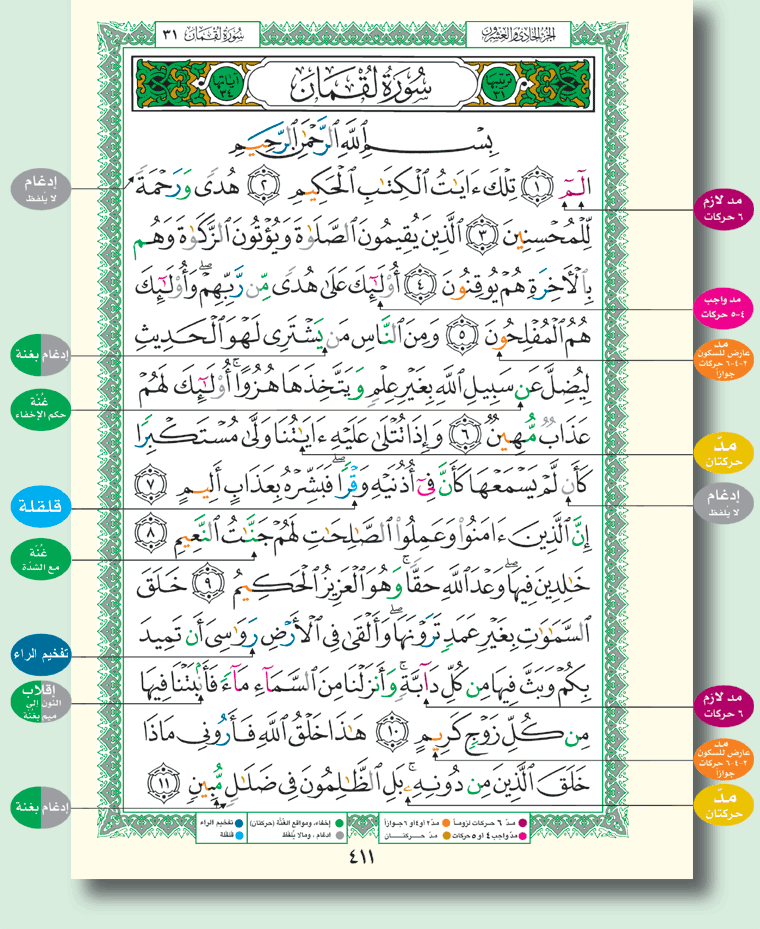 الجزء الحادي والعشرون
سُورَةُ لُقْمَان ٣١
ترتيبها ٣١
سُورَةُ لُقْمَان
آياتها ٣٤
بِسْمِ ٱللَّهِ ٱلرَّحْمَٰنِ ٱلرَّحِيمِ
الٓمٓ ﴿١﴾ تِلْكَ ءَايَٰتُ ٱلْكِتَٰبِ ٱلْحَكِيمِ ﴿٢﴾ هُدًى وَرَحْمَةً
لِّلْمُحْسِنِينَ ﴿٣﴾ ٱلَّذِينَ يُقِيمُونَ ٱلصَّلَوٰةَ وَيُؤْتُونَ ٱلزَّكَوٰةَ وَهُم
بِٱلْأَخِرَةِ هُمْ يُوقِنُونَ ﴿٤﴾ أُو۟لَٰٓئِكَ عَلَىٰ هُدًى مِّن رَّبِّهِمْ ۖ وَأُو۟لَٰٓئِكَ
هُمُ ٱلْمُفْلِحُونَ ﴿٥﴾ وَمِنَ ٱلنَّاسِ مَن يَشْتَرِى لَهْوَ ٱلْحَدِيثِ
لِيُضِلَّ عَن سَبِيلِ ٱللَّهِ بِغَيْرِ عِلْمٍ وَيَتَّخِذَهَا هُزُوًا ۚ أُو۟لَٰٓئِكَ لَهُمْ
عَذَابٌ مُّهِينٌ ﴿٦﴾ وَإِذَا تُتْلَىٰ عَلَيْهِ ءَايَٰتُنَا وَلَّىٰ مُسْتَكْبِرًا
كَأَن لَّمْ يَسْمَعْهَا كَأَنَّ فِىٓ أُذُنَيْهِ وَقْرًا ۖ فَبَشِّرْهُ بِعَذَابٍ أَلِيمٍ ﴿٧﴾
إِنَّ ٱلَّذِينَ ءَامَنُوا۟ وَعَمِلُوا۟ ٱلصَّٰلِحَٰتِ لَهُمْ جَنَّٰتُ ٱلنَّعِيمِ ﴿٨﴾
خَٰلِدِينَ فِيهَا ۖ وَعْدَ ٱللَّهِ حَقًّا ۚ وَهُوَ ٱلْعَزِيزُ ٱلْحَكِيمُ ﴿٩﴾ خَلَقَ
ٱلسَّمَٰوَٰتِ بِغَيْرِ عَمَدٍ تَرَوْنَهَا ۖ وَأَلْقَىٰ فِى ٱلْأَرْضِ رَوَٰسِىَ أَن تَمِيدَ
بِكُمْ وَبَثَّ فِيهَا مِن كُلِّ دَآبَّةٍ ۚ وَأَنزَلْنَا مِنَ ٱلسَّمَآءِ مَآءً فَأَنۢبَتْنَا فِيهَا
مِن كُلِّ زَوْجٍ كَرِيمٍ ﴿١٠﴾ هَٰذَا خَلْقُ ٱللَّهِ فَأَرُونِى مَاذَا
خَلَقَ ٱلَّذِينَ مِن دُونِهِۦ ۚ بَلِ ٱلظَّٰلِمُونَ فِى ضَلَٰلٍ مُّبِينٍ ﴿١١﴾
مد لازم
٦ حركات
مد واجب
٤-٥ حركات
مد
عارض للسكون
٢-٤-٦ حركات
جوازاً
مدّ
حركتان
إدغام
لا يُلفظ
مد لازم
٦ حركات
مد
عارض للسكون
٢-٤-٦ حركات
جوازاً
مدّ
حركتان
إدغام
لا يلفظ
إدغام بغنة
غُنّة
حكم الإخفاء
قلقلة
غُنّة
مع الشدّة
تفخيم الراء
إقلاب
النون إلى
ميم بغنة
إدغام بغنة
مدّ ٦ حركات لزوماً مدّ ٢ أو ٤ أو ٦ جوازاً
مدّ واجب ٤ أو ٥ حركات مدّ حركتان
إخفاء، ومواقع الغُنَّة (حركتان)
ادغام، ومالا يُلفَظ
تفخيم الراء
قلقلة
٤١١